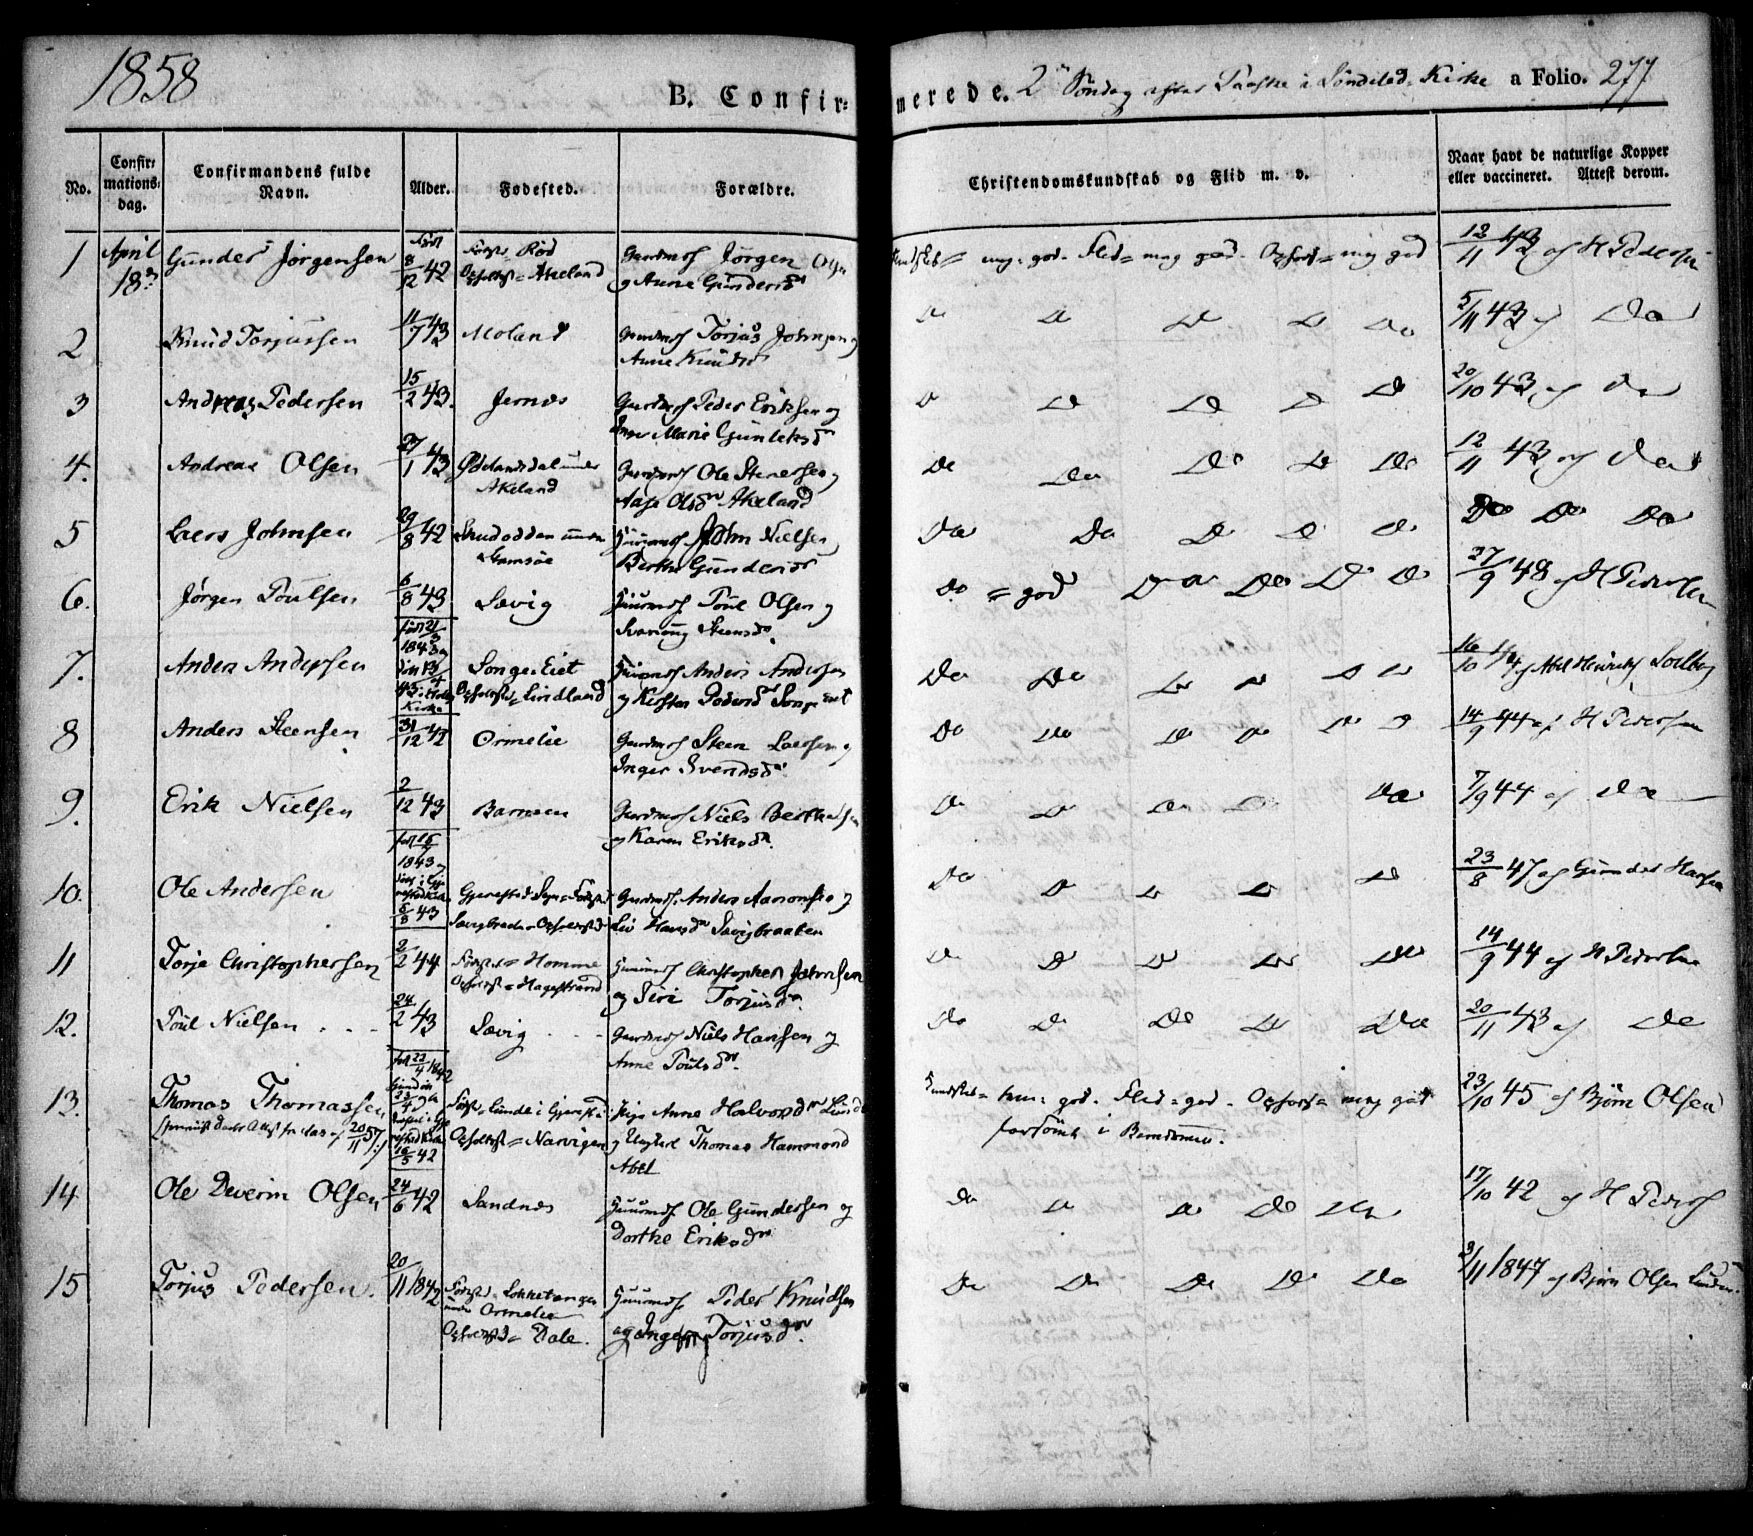 1858
B. Confirmerede. 2den Søndag efter Paaske i Søndeled Kirke a Folio. 277
No. Confirmationsdag. Confirmandens fulde Navn. Alder. Fødested. Forældre. Christendomskundskab og Flid m. v. Naar havt de naturlige Kopper eller vaccineret. Attest derom.
1 April 18de Gunder Jørgensen Født 8/12 42 Fødst= Rød
Akeland Gaardmd Jørgen Olsen
og Anne Gundersdr
Kundskab= meg. god. Flid= meg god. Opførs= meg god 12/11 43 af H Pedersen
2 Knud Torjussen 11/7 43 Moland Gaardmd Torjus Johnsen og
Anne Knudsdr
Do Do Do Do Do 5/11 43 af Do
3 Andreas Pedersen 15/2 43. Jernes Gaardmd Peder Eriksen og
Marie Gunleksdr
Do Do Do Do Do 20/10 43 af Do
4. Andreas Olsen 27/1 43 Ødelandsdal under
Akeland Gaardmd Ole Steensen og
Aase Olsdr Akeland
Do Do Do Do Do 12/11 43 af Do
5 Laers Johnsen 29/8 42 under
Huusmd John Nielsen
Berthe Gundersdr
Do Do Do Do Do Do Do Do
6. Jørgen Poulsen 6/8 43 Sævig Huusmd Poul Olsen og
Steensdr.
Do = god Do Do Do Do 27/9 48 af H Pedersen
7. Anders Andersen født 21/3
1843 og
Kirke
Songe Eiet
Lindland Huusmd Anders Andersen
og Kirsten Pedersdr Songe eiet
Do Do Do Do Do Do 16/10 44 af Abel Henrichs Solberg
8 Anders Steensen 31/12 42 Ormelie Gaardmd Steen Laersen og
Inger Svendsdr
Do Do Do Do Do Do 14/9 44 af H Pedersen
9. Erik Nielsen 2/12 43 Barmen Gaardmd Niels Berthelsen
og Karen Eriksdr.
Do Do Do Do Do 7/9 44 af Do
10. Ole Andersen født 15/7
1843 og
6/8 43
Gjerestad Sogn= Fødst
Sævigbraaten Opfostst Gaardmd. Anders Aanonsen og
Liv Hansdr Sævigbraaten
Do Do Do Do Do 23/8 47 af Gunder Hansen
11 Torje Christophersen 2/2 44 Fødst= Homme
Opfostst= Hagestrand Huusmd Christopher Johnsen
og Siri Torjusdr
Do Do Do Do Do 14/9 44 af H Pedersen
12. Poul Nielsen 24/2 43 Sævig Gaardmd Niels Hansen og
Anne Poulsdr.
Do Do Do Do Do 20/11 43 af Do
13. Thomas Thomassen født 22/4 1842
16/5 42
Fødst= Lunde i Gjerestad
Opfostst= Narvigen Pige Anne Halvorsdr Lunde
og Ungkarl Thomas Hammond
Abel
Kundskab= tem: god. Flid= god. Opførs= meg god
forsømt i Barndommen. 23/10 45 af Bjørn Olsen
14 Ole Severin Olsen 24/6 42 Sandnes Huusmd. Ole Gundersen og
Dorthe Eriksdr
Do Do Do Do Do 17/10 42 af H Peders
15 Torjus Pedersen. 20/11 1842 Fødst= Lokketangen
under Ormelie
Opfostst= Dale. Huusmd. Peder Knudsen
og Inger Torjusdr.
Do Do Do Do Do 3/11 1847 af Bjørn Olsen